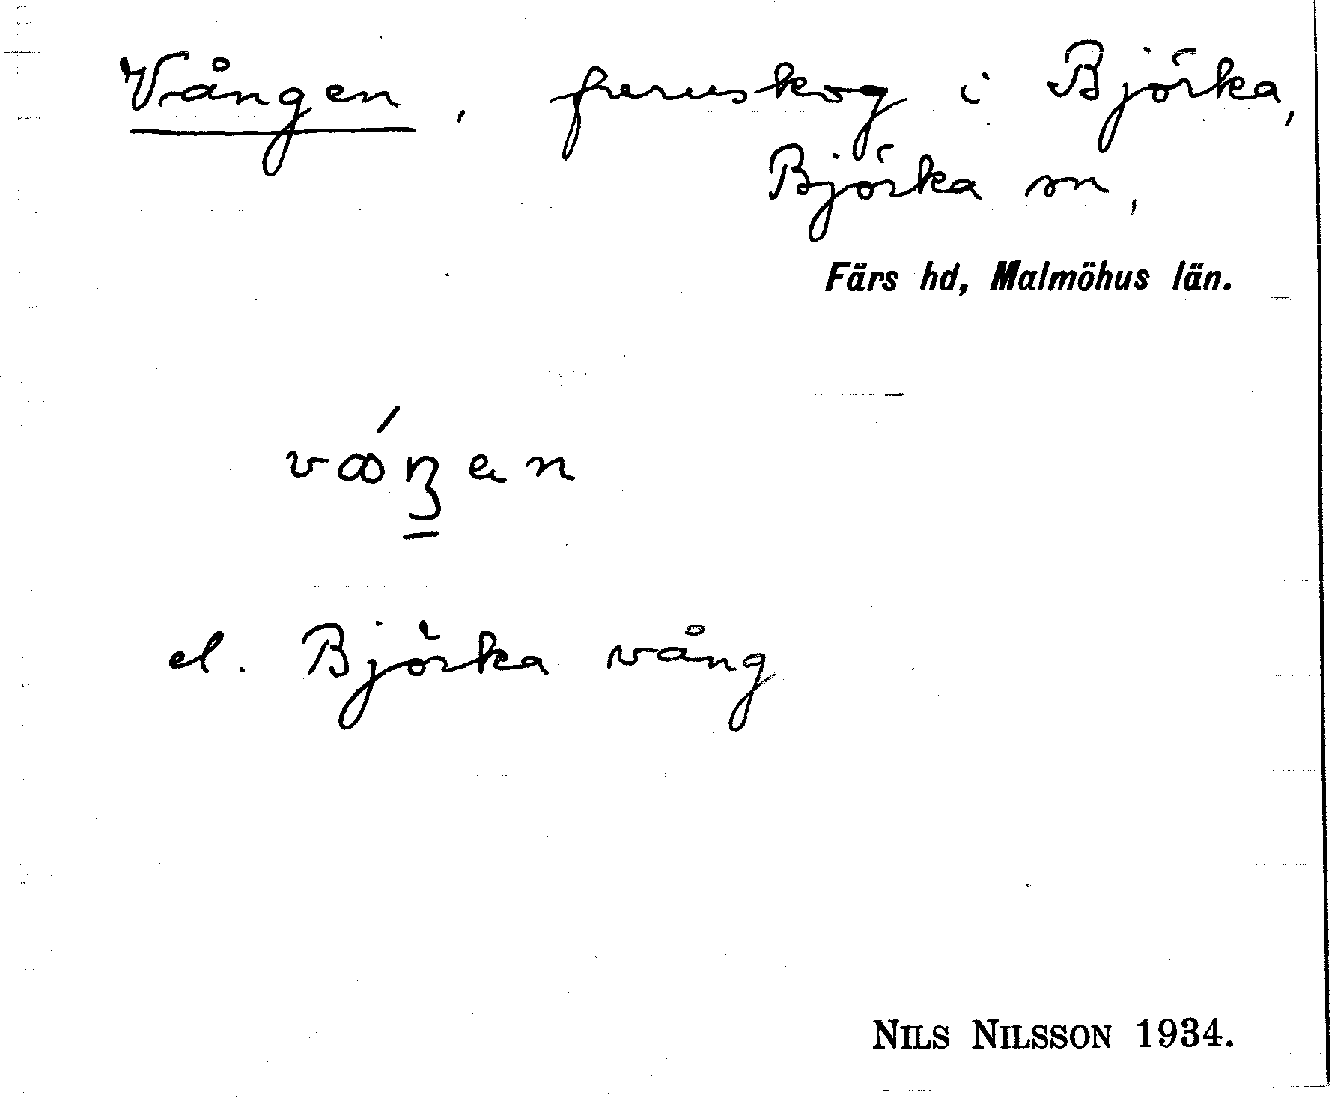 Vången, furuskog i Björka,
Björka sn,
Färs hd, Malmöhus län.
el. Björka vång
NILS NILSSON 1934.